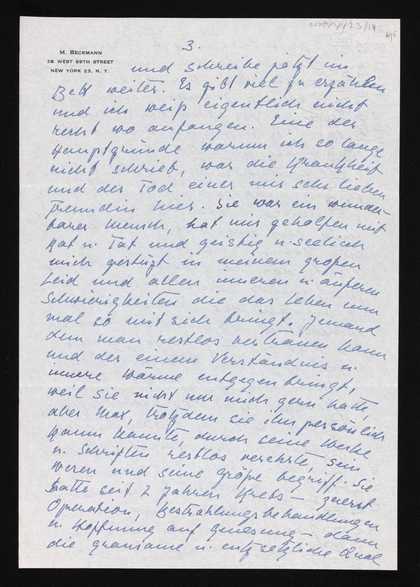 M. BECKMANN
38 WEST 69TH STREET
NEW YORK 23, N. Y.
3.
und schreibe jetzt im
Bett weiter. Es gibt viel zu erzählen
und ich weiß eigentlich nicht
recht wo anfangen. Eine der
Hauptgründe warum ich so lange
nicht schrieb, war die Krankheit
und der Tod einer mir sehr lieben
Freundin hier. Sie war ein wunder-
barer Mensch, hat mir geholfen mit
Rat u. Tat und geistig u. seelisch
mich gestützt in meinem großen
Leid und allen inneren u. äußeren
Schwierigkeiten die das Leben nun
mal so mit sich bringt. Jemand
dem man restlos vertrauen kann
und der einem Verständnis u.
innere Wärme entgegen bringt,
weil sie nicht nur mich gern hatte
aber Max, trotzdem sie ihn persönlich
kaum kannte, durch seine Werke
u. Schriften restlos verehrte, sein
Wesen und seine größe begriff. Sie
hatte seit 2 Jahren Krebs – zuerst
Operation, Bestrahlungsbehandlungen
u. Hoffnung auf genesung – dann
die grausame u. entsetzliche Qual